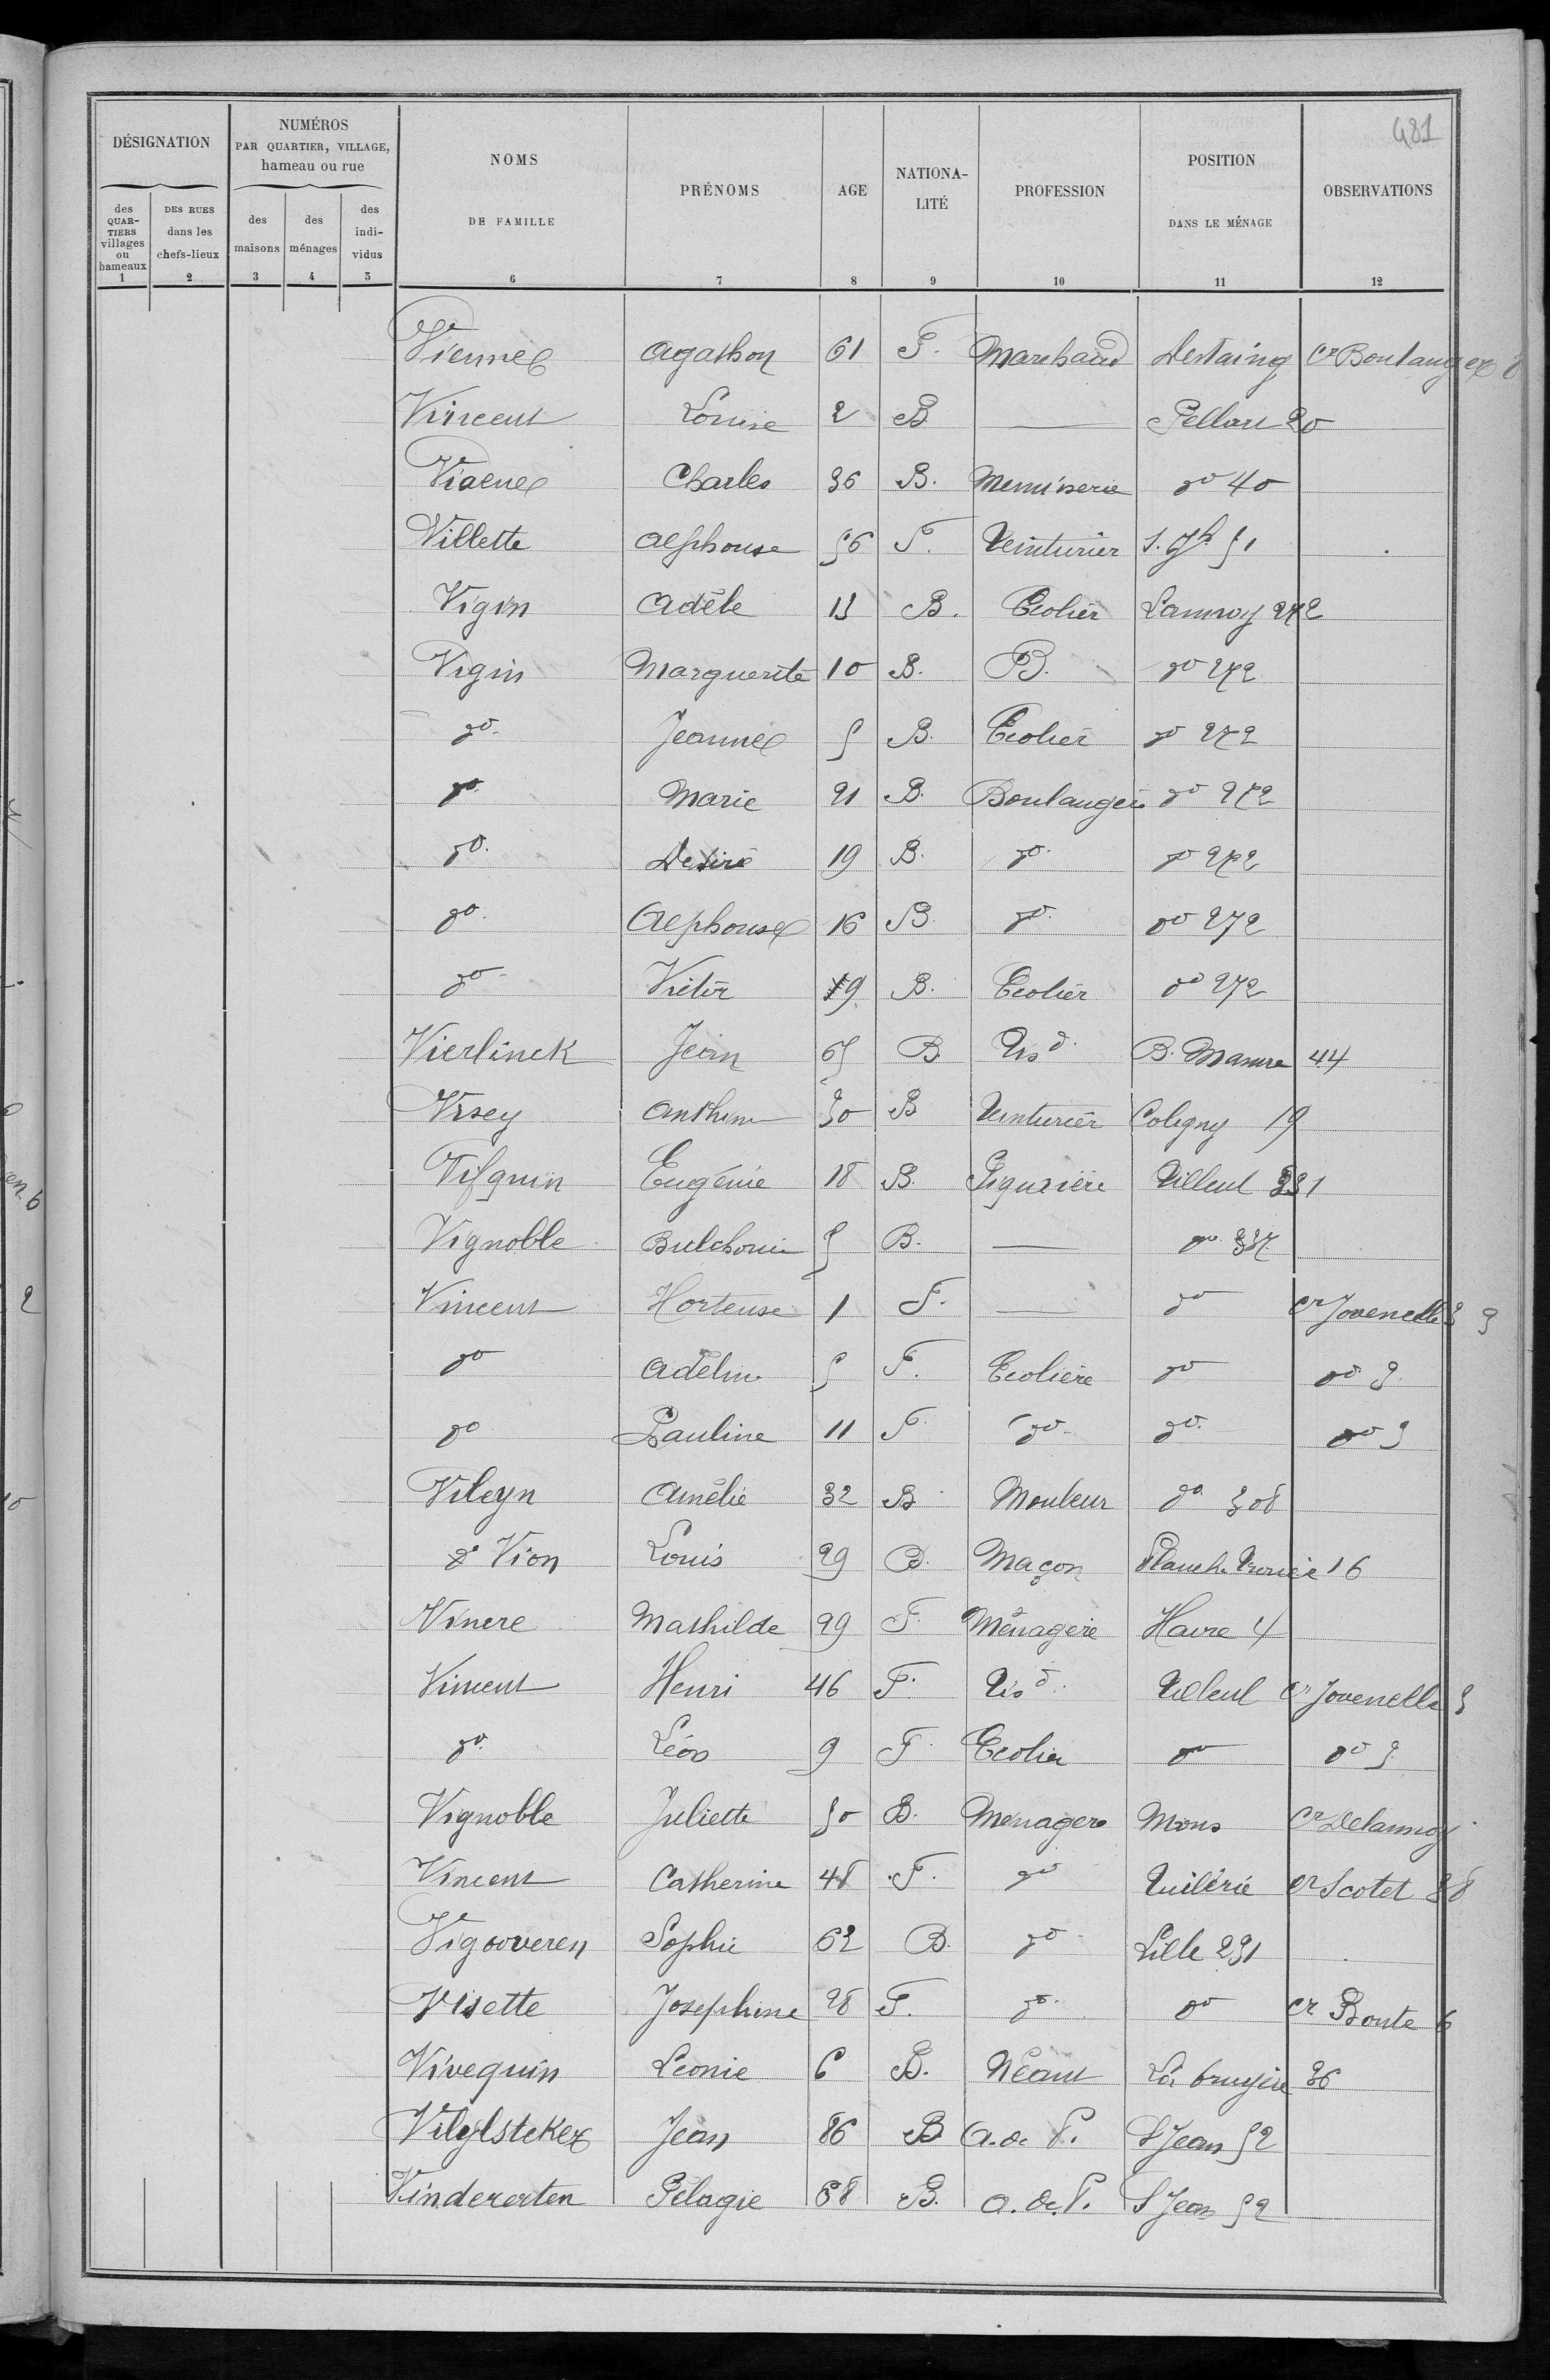 481
DÉSIGNATION NUMÉROS PAR QUARTIER, VILLAGE, hameau ou rue NOMS DE FAMILLE PRÉNOMS AGE NATIONA-LITÉ PROFESSION POSITION DANS LE MÉNAGE OBSERVATIONS
des QUAR-TIERS villages ou hameaux DES RUES dans les chefs-lieux des maisons des ménages des indi-vidus
1 2 3 4 5 6 7 8 9 10 11 12
Vienne Agathon 61 F. Marchand Destaing Cr Boulanger 8
Vincent Louise 2 B Pellart 20
Viaene Charles 36 B. Menuiserie do 40
Villette Alphonse 56 F. Teinturier S. Jh 51
Vigin Adèle 13 B. Ecolier Lannoy 272
Vigin Marguerite 10 B. B. do 272
do Jeanne 5 B. Ecolier do 272
do Marie 21 B. Boulangère do 272
do Desiré 19 B. do do 272
do Alphonse 16 B. do do 272
do Victor 9 B. Ecolier do 272
Vierlinck Jean 65 B Tisd B. Masure 44
Visey Anthime 30 B Teinturier Coligny 19
Vifquin Eugénie 18 B. Piqurière Tilleul 331
Vignoble 5 B. do 337
Vincent Hortense 1 F. do Cr Jovenelle 3
do Adeline 5 F. Ecolière do do 3
do Pauline 11 F. do do do 3
Vileyn Amélie 32 B Mouleur do 308
d'Vion Louis 29 B. Maçon Planche Trouée 16
Vinere Mathilde 29 F. Ménagère Havre 4
Vincent Henri 46 F. Tisd Tilleul Cr Jovenelle 3
do Léon 9 F Ecolier do do 3
Vignoble Juliette 50 B. Menagere Mons Cr Delannoy
Vincent Catherine 48 F. do Tuilerie Cr Scotet 38
Vigooveren Sophie 62 B. do Lille 231
Visette Josephine 28 F. do do Cr Bonte 6
Vivequin Leonie 6 B. Néant La bruyère 36
Vilylsteker Jean 86 B A. de P. St Jean 52
Vindererten Pélagie 68 B. A. de P. St Jean 52